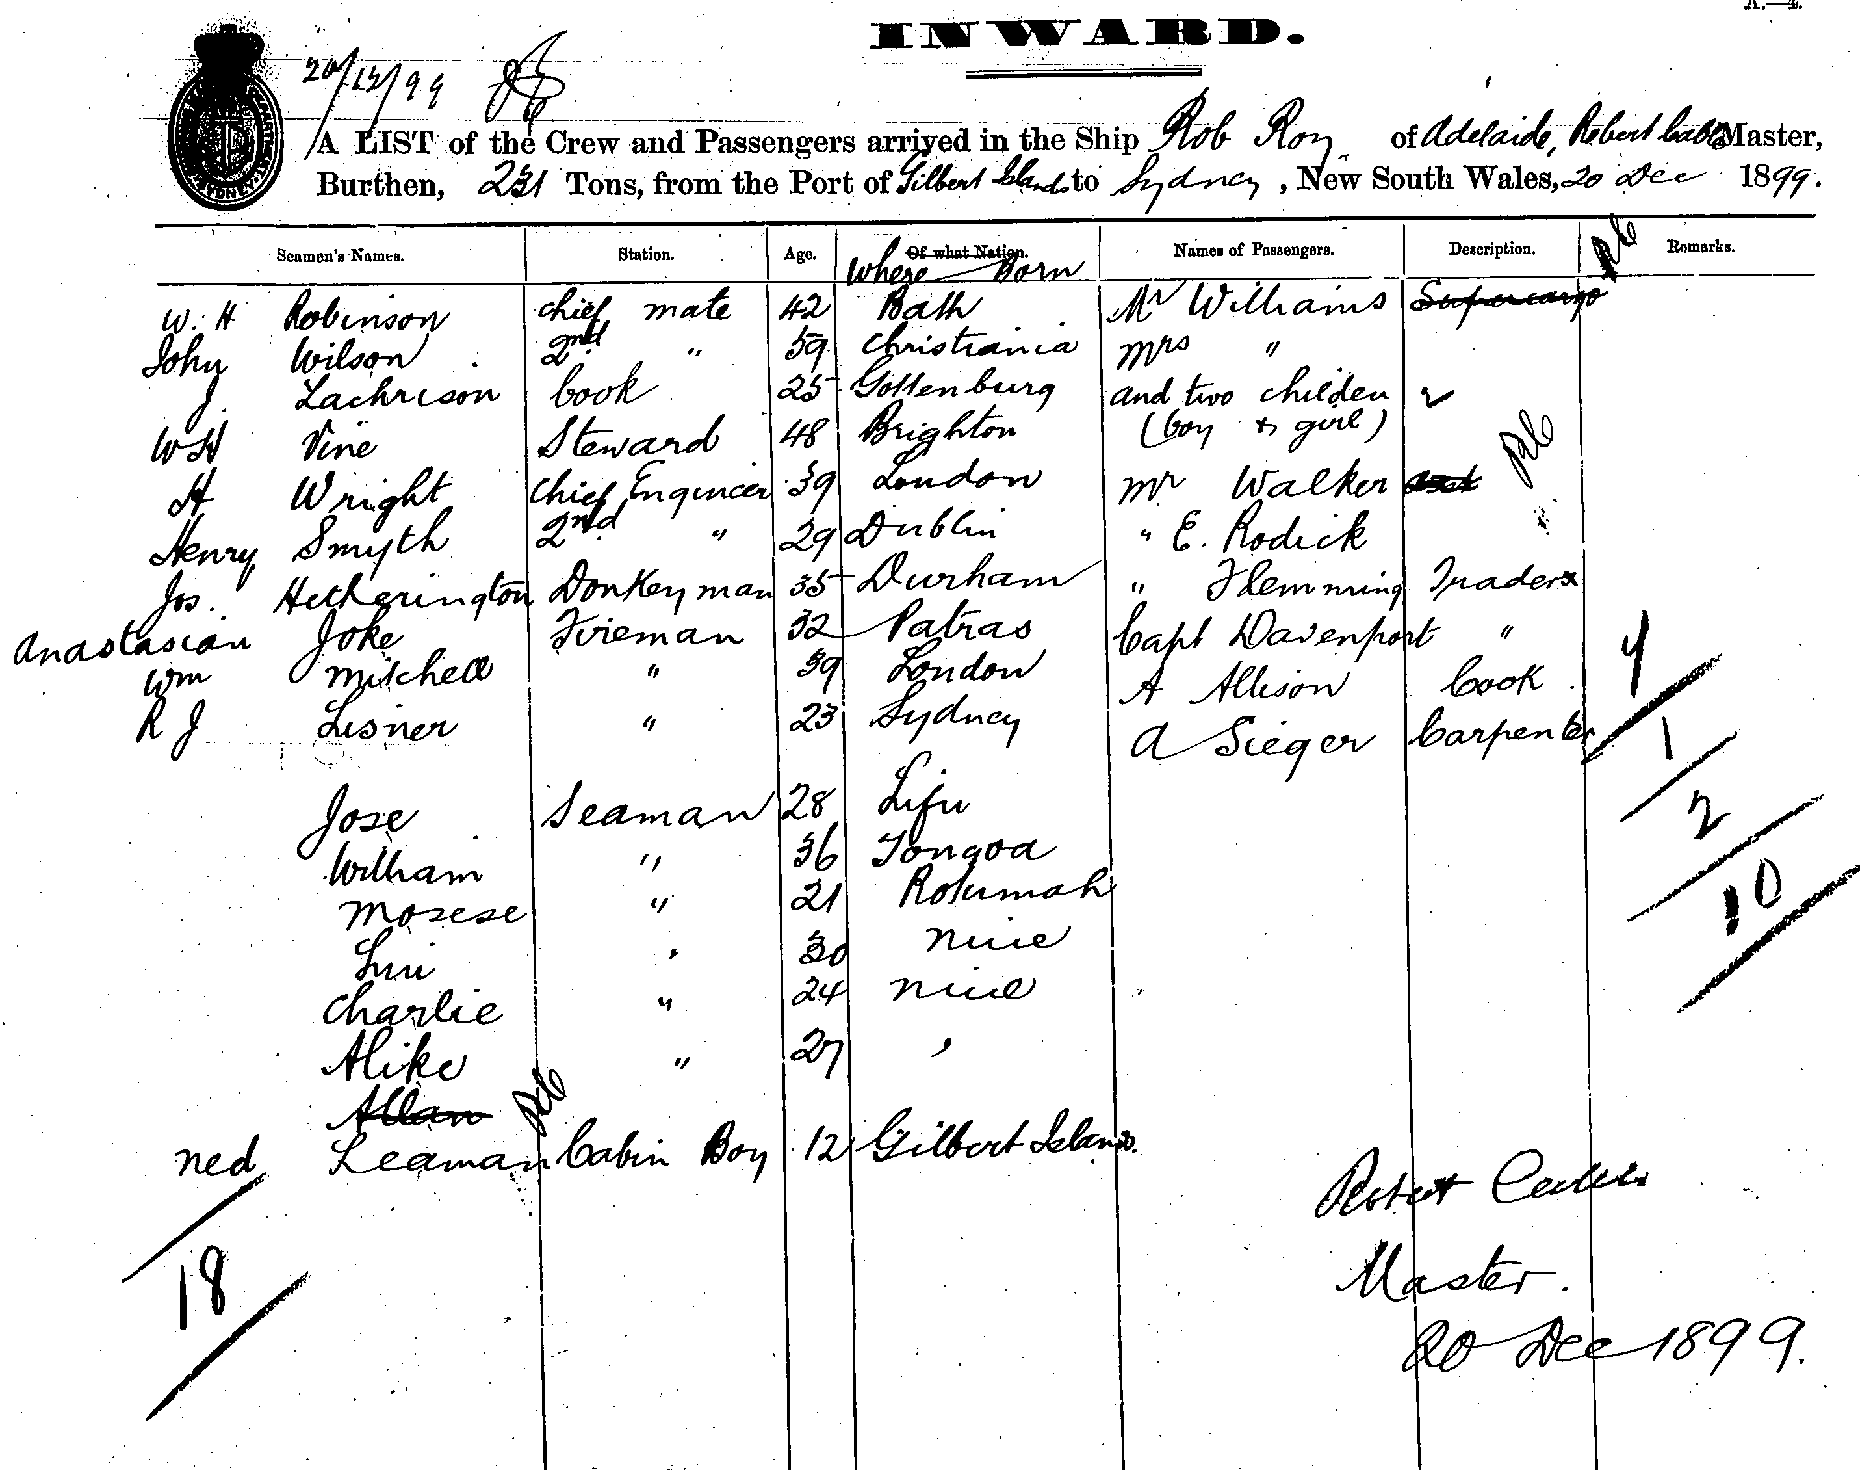 INWARD.
20/12/99
A LIST of the Crew and Passengers arrived in the Ship Rob Roy of Adelaide, Robert Master,
Burthen, 231 Tons, from the Port of Gilbert Islands to Sydney, New South Wales, 20 Dec 1899.
Seamen's Names. Station. Age. Of what Nation. Names of Passengers. Description. Remarks.
Where Born
W. H Robinson chief mate 42 Bath Mr Williams Supercargo
John Wilson 2nd " 59 Christiania Mrs "
J. Lachrison Cook 25 Gottenburg and two childen
WH Vine Steward 48 Brighton (boy & girl)
H Wright Chief Engineer 39 London Mr Walker
Henry Smyth 2nd " 29 Dublin " E. Rodick
Jos. Hetherington Donkeyman 35 Durham " Flemming Traders
Anastasian Joke Fireman 32 Patras Capt Davenport "
Wm Mitchell " 39 London A Allison Cook 4
R J Lisner " 23 Sydney A Sieger Carpenter 1
Jose Seaman 28 Lifu 2
William " 36 Tongoa
Mosese " 21 Rotumah 10
" 30 Niue
Charlie " 24 Niue
Alike " 27 "
Allan
Ned Leaman Cabin Boy 12 Gilbert Islands.
18
Robert
Master.
20 Dec 1899.